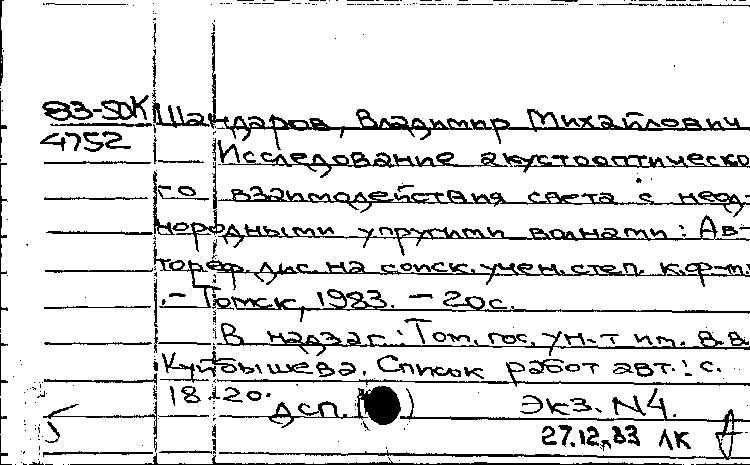 83-50К Шандаров, Владимир Михайлович
4752 Исследование акустооптическо
го взаимодействия света с неод-
нородными упругими волнами: Ав-
тореф. дис. на соиск. учен. степ. к.ф-м
.- Томск, 1983. - 20с.
В надзаг.: Том. гос. ун-т им. В.В.
Куйбышева. Список работ авт.: с.
18-20.
ДСП. ( ) Экз. N4.
27.12.83 ЛК
5